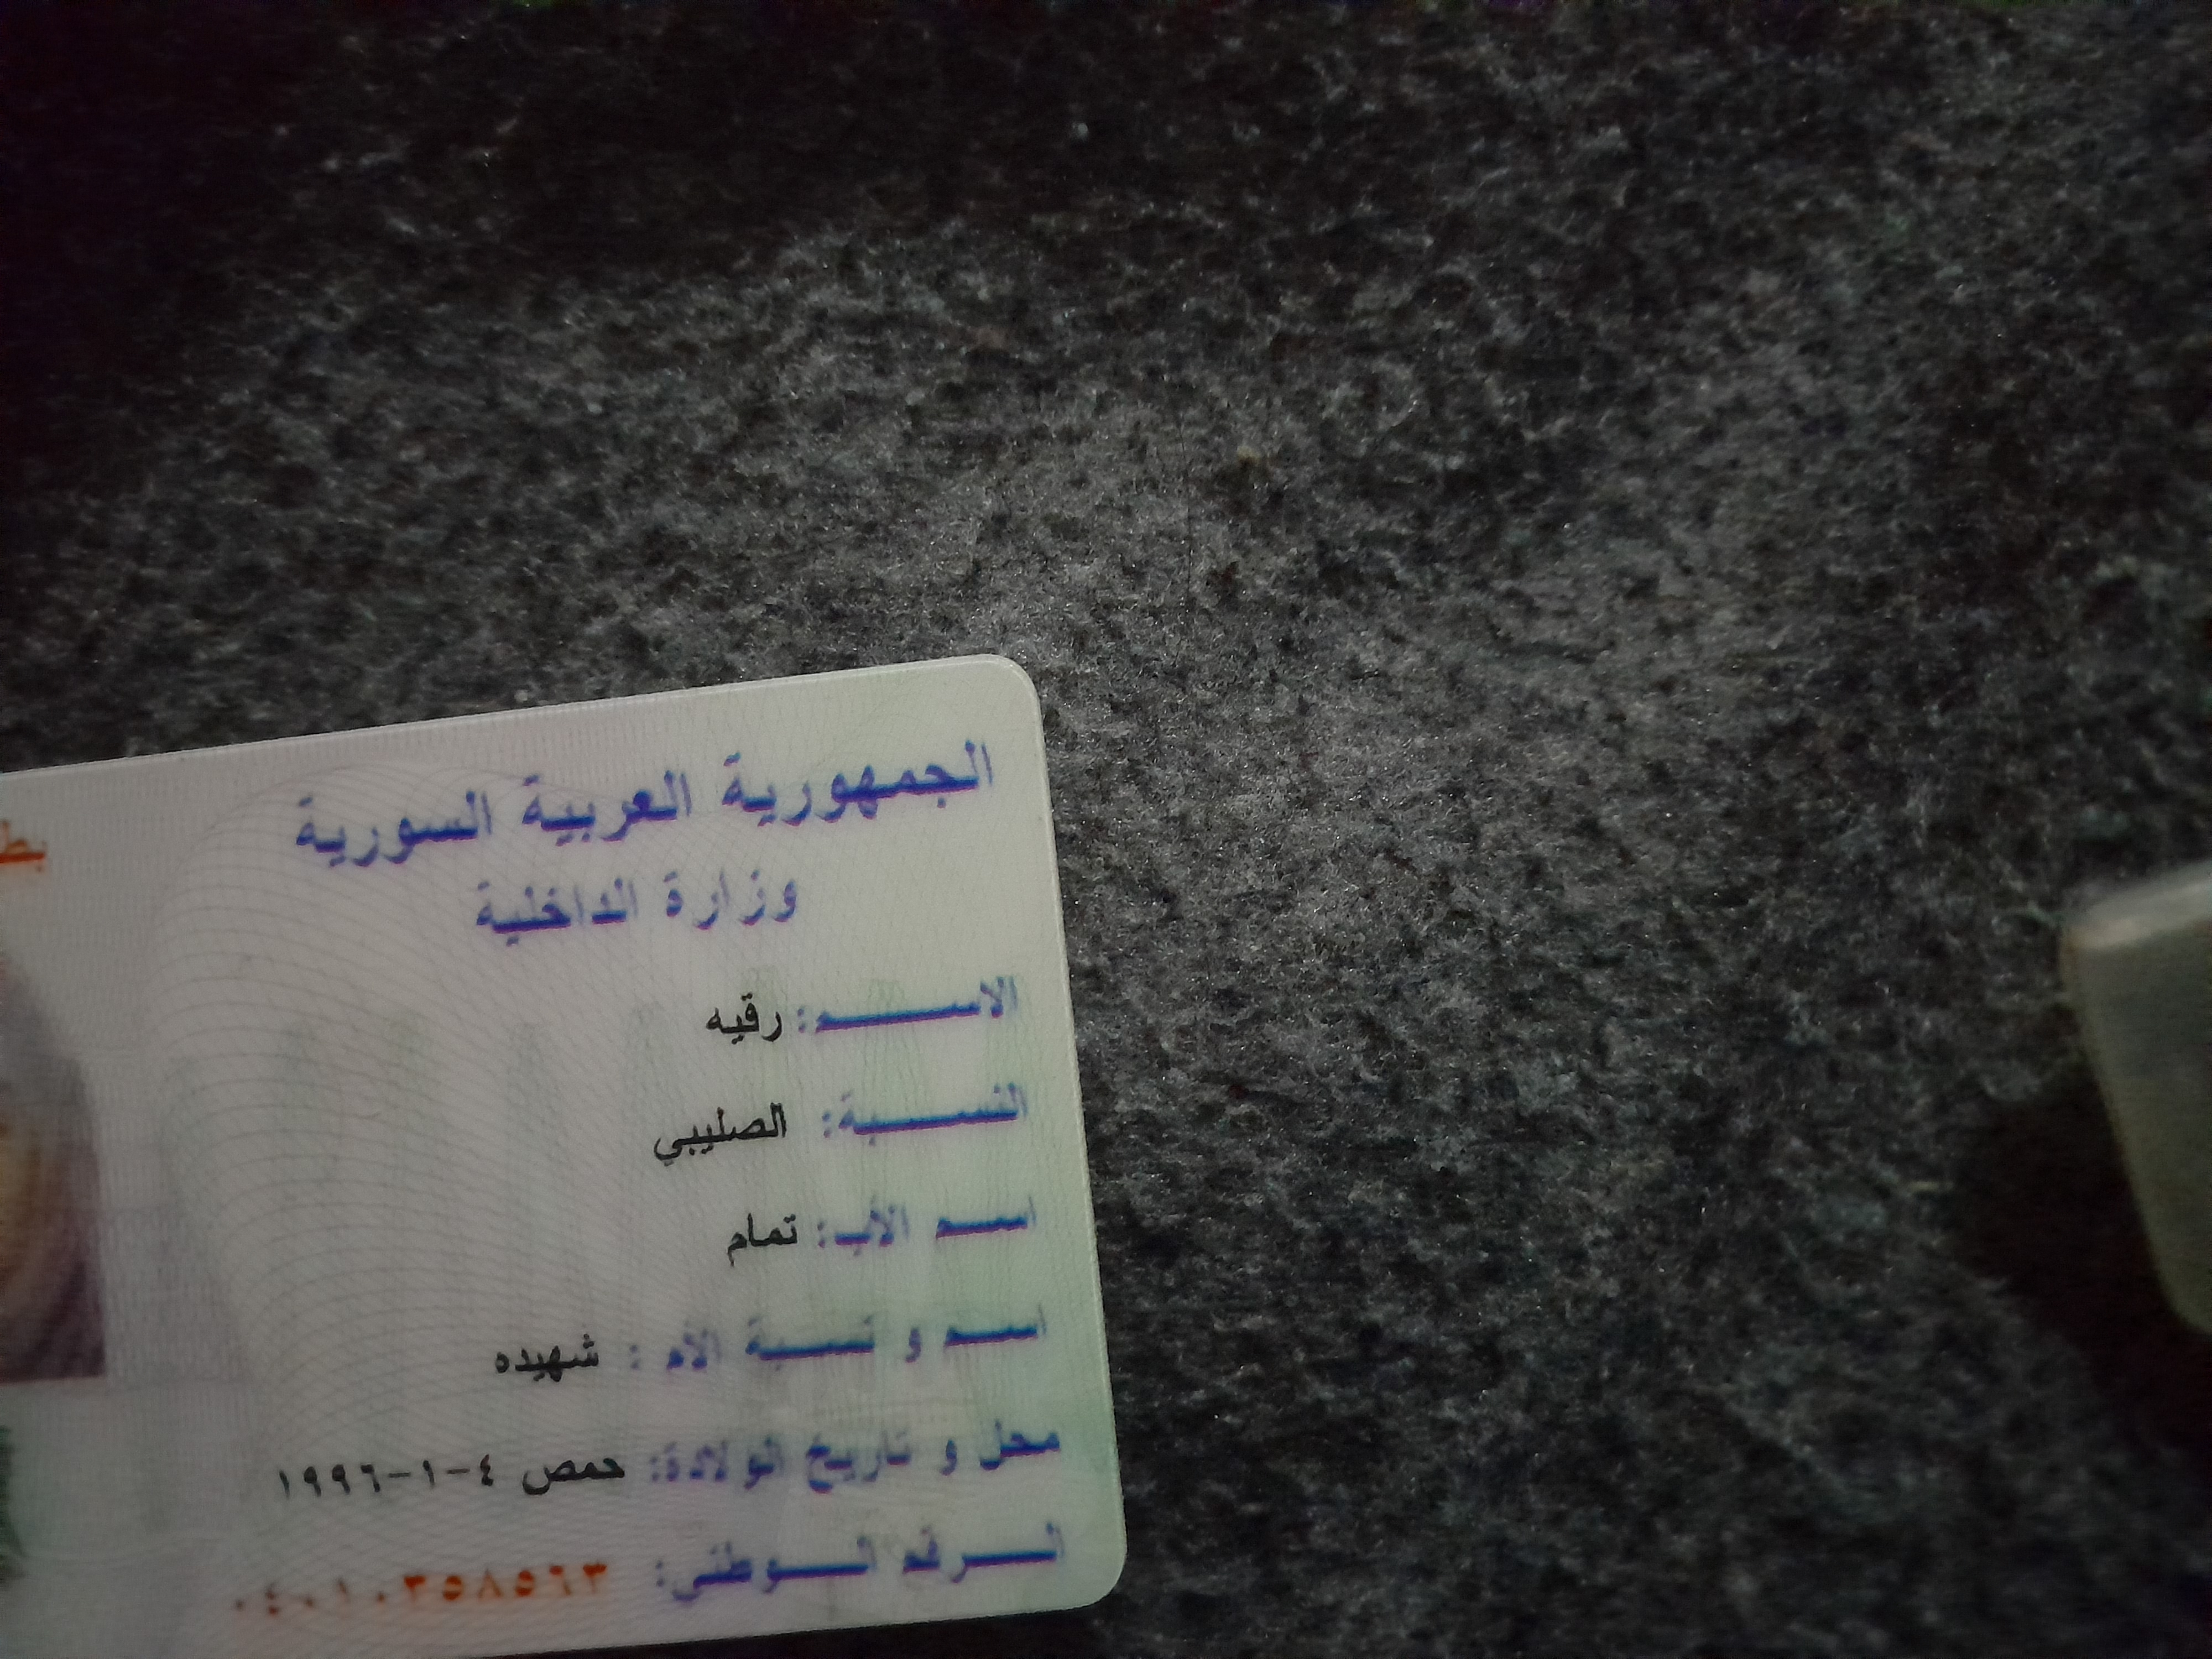 الجمهورية العربية السورية
وزارة الداخلية
الاســـــم: رقيه
النســـبة: الصليبي
اســم الأب: تمام
اســم و نســبة الأم : شهيده
محل و تاريخ الولادة: حمص ٤-١-١٩٩٦
الـــرقم الـــوطني: ٠٤٠١٠٣٥٨٥٦٣